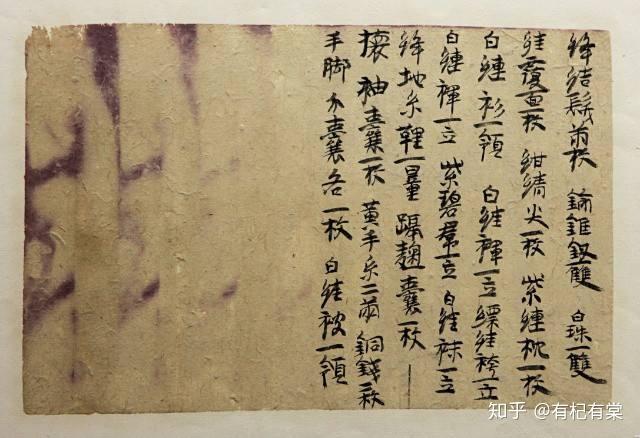 絳結髮兩枚 鍮錐釵一雙 白珠一雙
絓覆面一枚 紺綪尖一枚 紫縺枕一枚
白縺衫一領 白絓褌一立 縹絓袴一立
白縺褌一立 紫碧裙一立 白絓袜一立
絳地糸鞋一量 蹹麴囊一枚
袖囊一枚 黃手糸二兩 銅錢二枚
手脚爪囊各一枚 白絓被一領
知乎 @有杞有棠